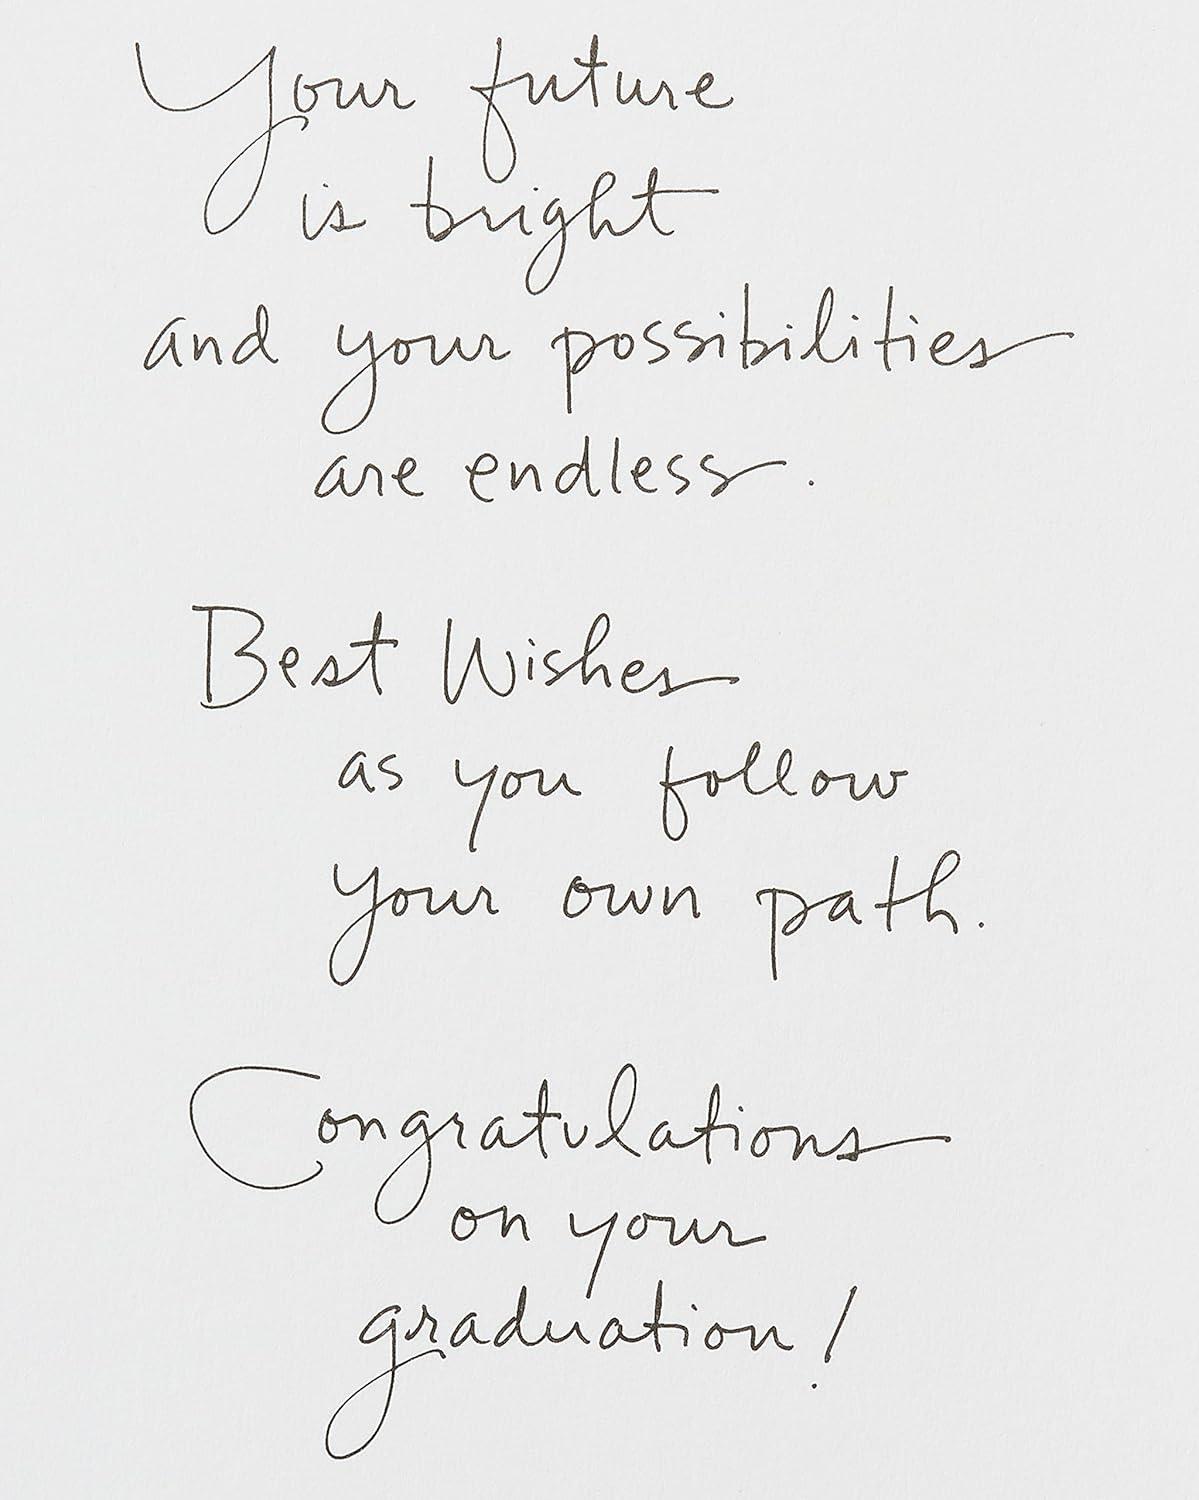 Your future
is bright
and your possibilities
are endless.
Best Wishes
as you follow
your own path.
Congratulations
on your
graduation!